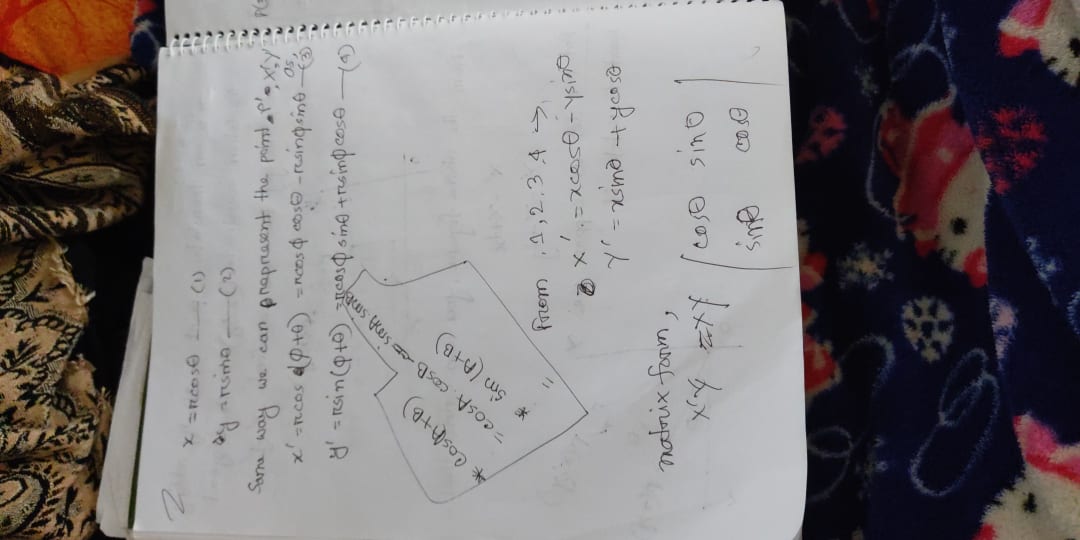 2
x = rcosθ —— (1)
y = rsinθ —— (2)
Same way we can prapresent the point P' X'Y' as,
x' = rcos (φ+θ) = rcosφ cosθ - rsinφsinθ —(3)
y' = rsin(φ+θ) = rcosφ sinθ + rsinφ cosθ —(4)
* cos(A+B)
= cosA. cosB - sinA sinB
* sin (A+B)
=
From .1,2.3.4 →
x' = xcosθ - ysinθ
Y' = xsinθ + ycosθ
matrix form,
X'Y = XY | cosθ sinθ |
sinθ cosθ